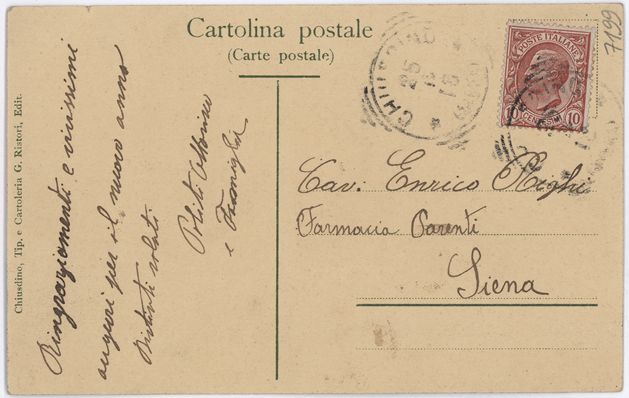 Cartolina postale
(Carte postale)
7199
CHIUSDINO
POSTE ITALIANE
CENTESIMI 10
Chiusdino, Tip. e Cartoleria G. Ristori, Edit.
Ringraziamenti e vivissimi
auguri per il nuovo anno
Distinti saluti
Politi Ottorino
e Famiglia
Cav. Enrico Righi
Farmacia Parenti
Siena